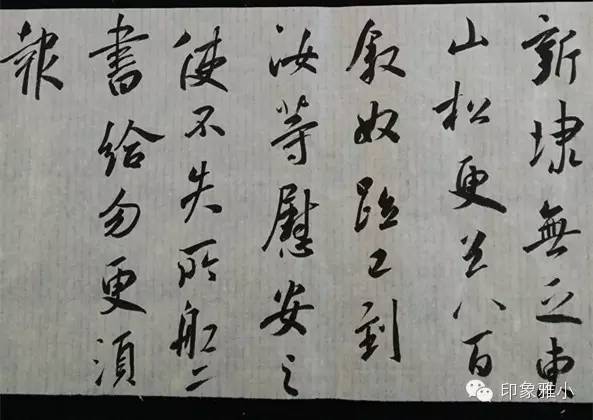 新埭無乏東
山松更送八百
敘奴已到
汝等慰安之
使不失所船二
書給勿更須
報
印象雅小